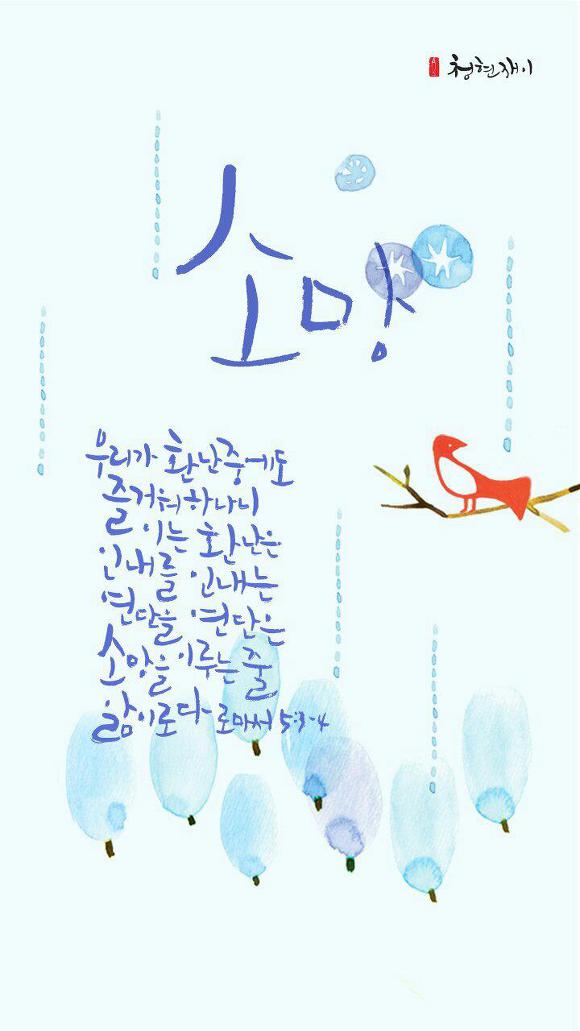 청현재이
소망
우리가 환난중에도
즐거워하나니
이는 환난은
인내를 인내는
연단을 연단은
소망을 이루는 줄
앎이로다 로마서 5:3-4